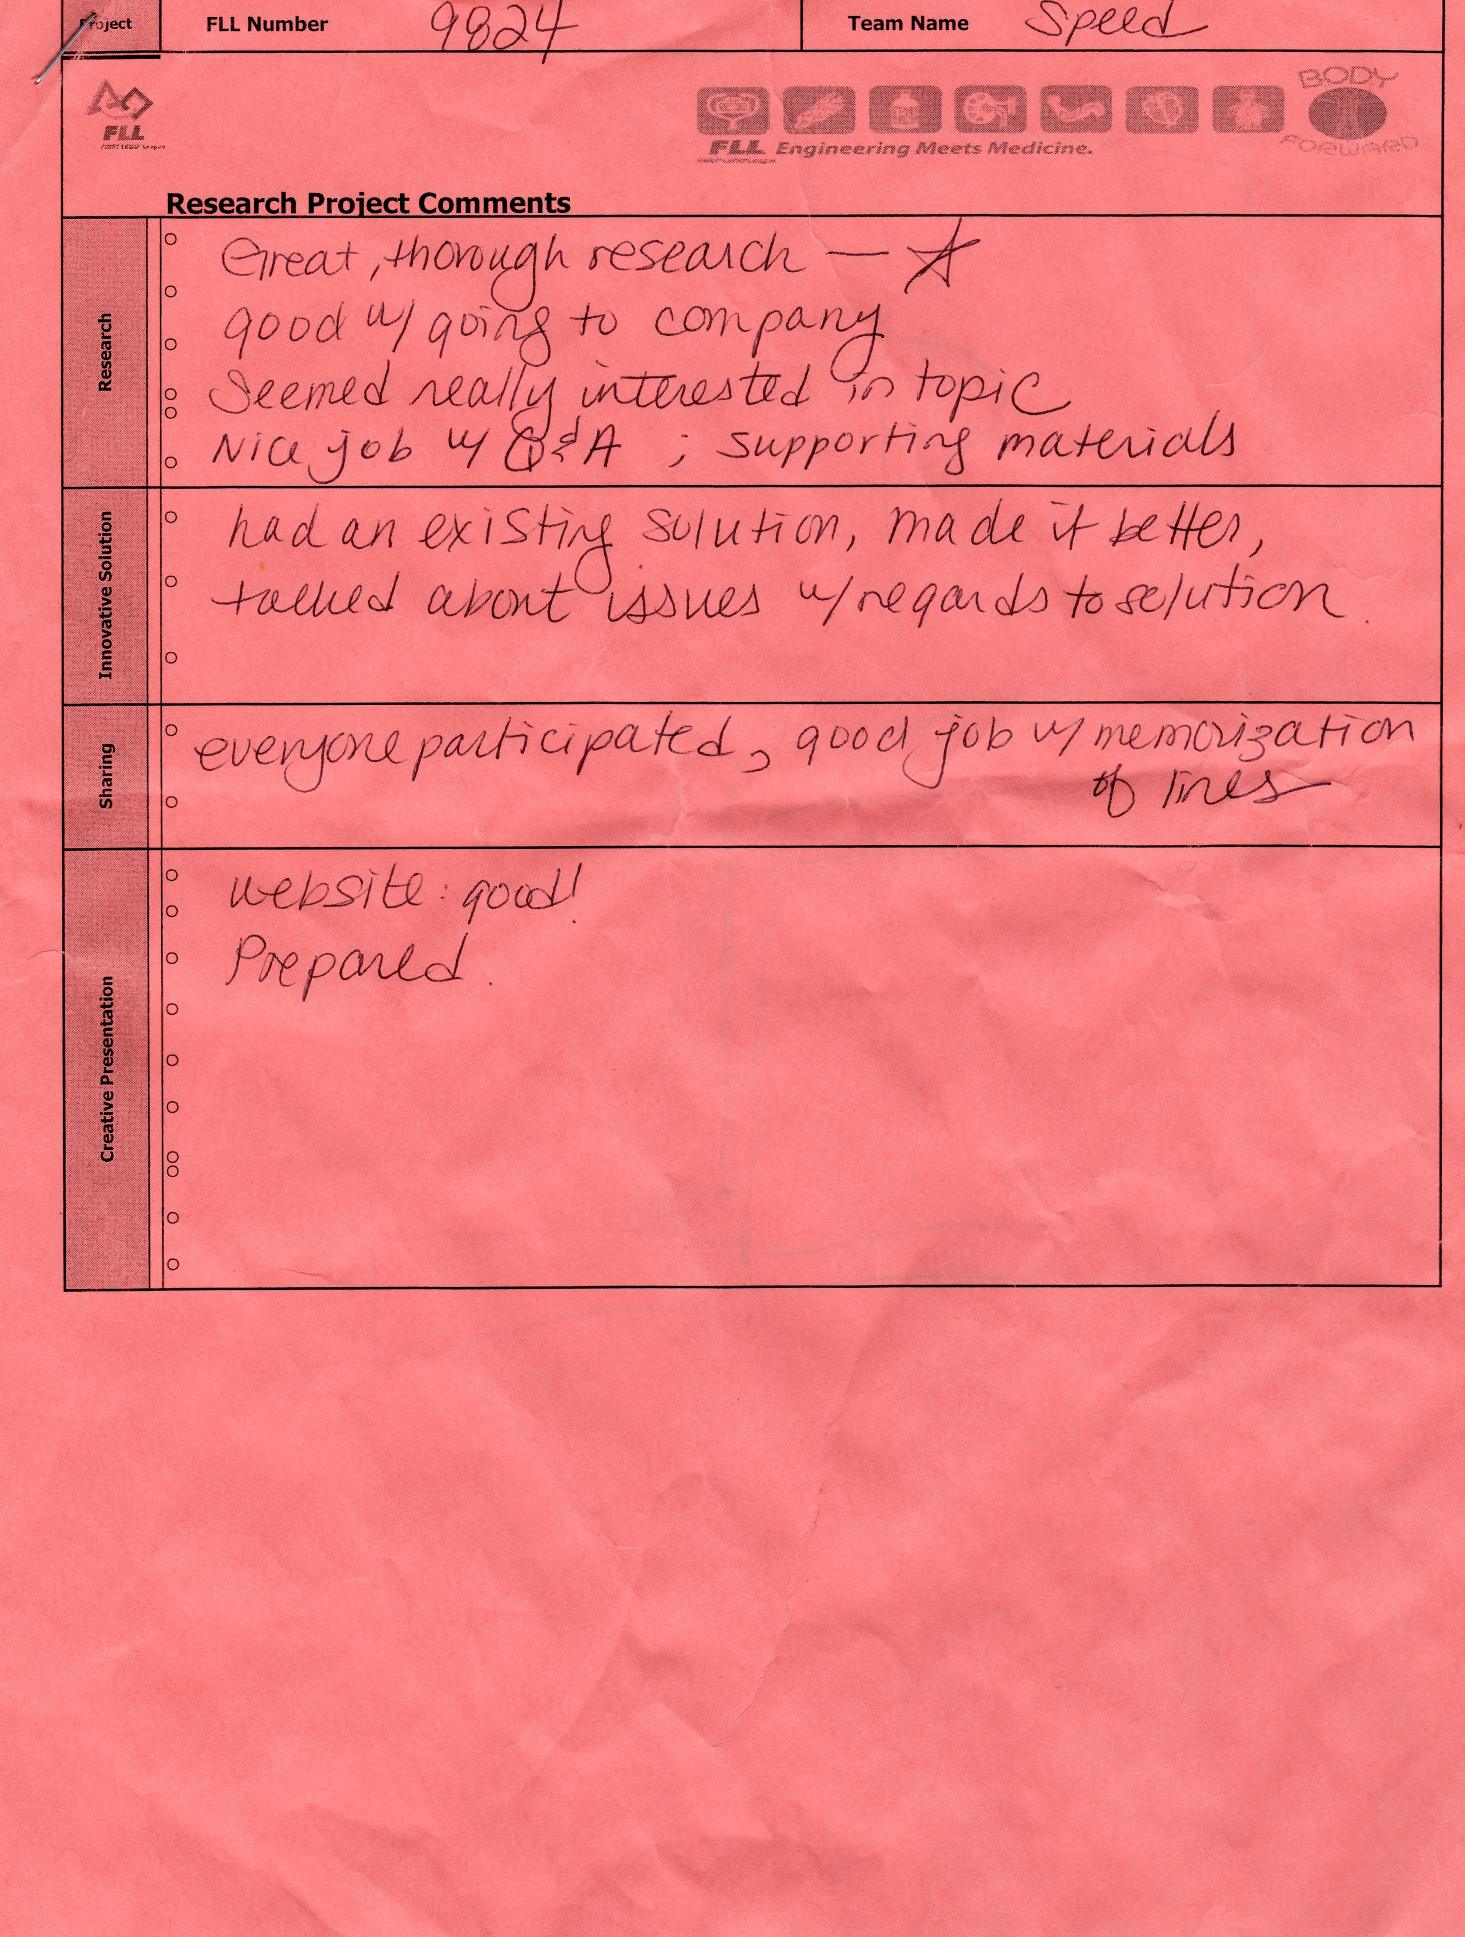 Project FLL Number 9824 Team Name Speed
FLL
FIRST LEGO League
BODY
FORWARD
FLL Engineering Meets Medicine.
Research Project Comments
Research
Great, thorough research — ☆
good w/ going to company
Seemed really interested in topic
Nice job w/ Q&A ; supporting materials
Innovative Solution
had an existing solution, made it better,
talked about issues w/ regards to solution.
Sharing
everyone participated, good job w/ memorization
of lines
Creative Presentation
website: good!
Prepared.